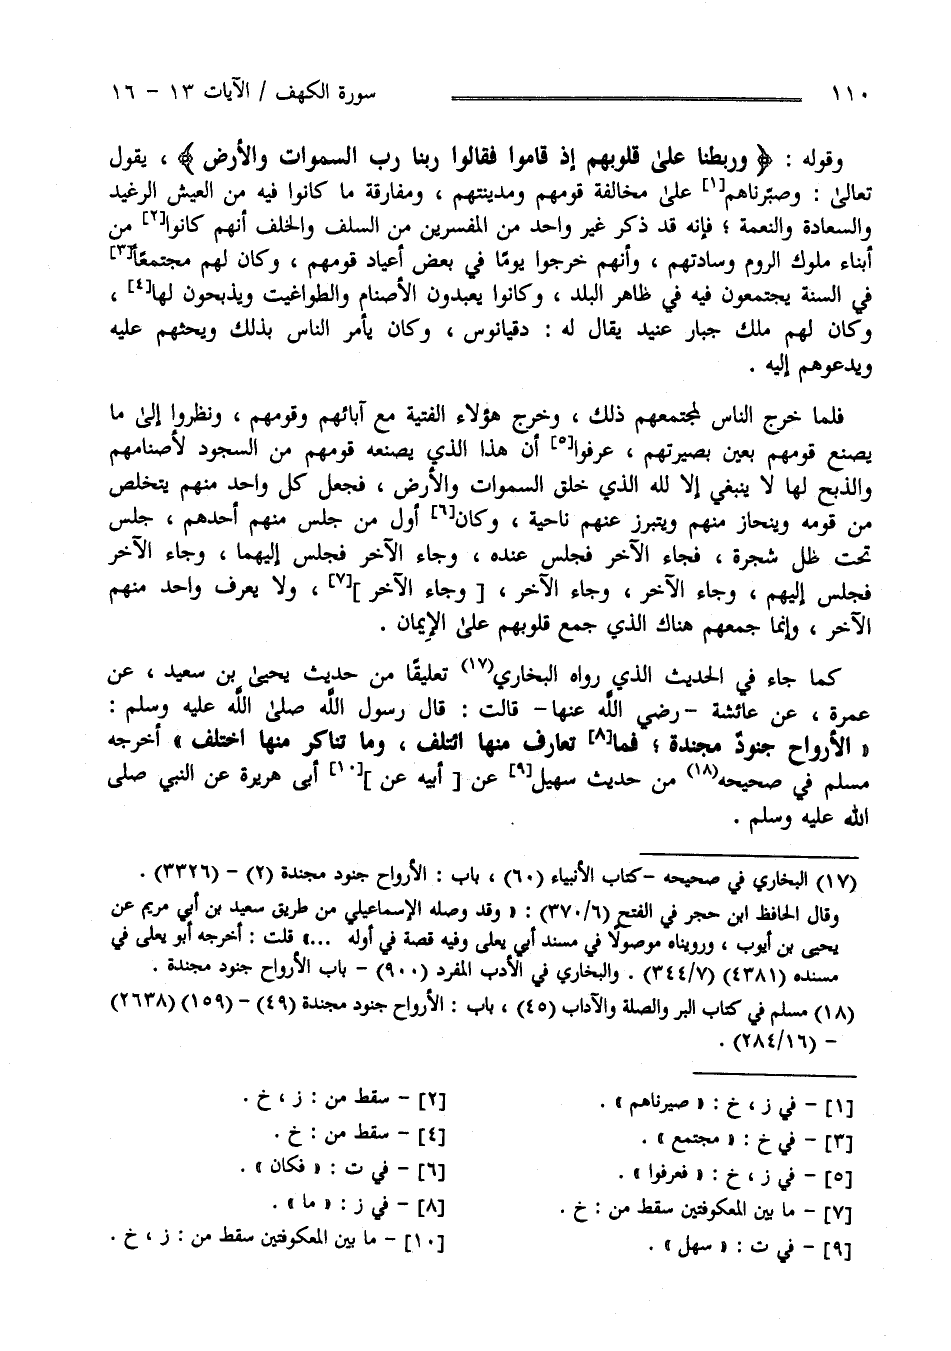 ١١٠ سورة الكهف / الآيات ١٣ - ١٦
وقوله : ﴿ وربطنا علىٰ قلوبهم إذ قاموا فقالوا ربنا رب السموات والأرض ﴾ ، يقول
تعالىٰ : وصبّرناهم[١] علىٰ مخالفة قومهم ومدينتهم ، ومفارقة ما كانوا فيه من العيش الرغيد
والسعادة والنعمة ؛ فإنه قد ذكر غير واحد من المفسرين من السلف والخلف أنهم كانوا[٢] من
أبناء ملوك الروم وسادتهم ، وأنهم خرجوا يومًا في بعض أعياد قومهم ، وكان لهم مجتمعًا[٣]
في السنة يجتمعون فيه في ظاهر البلد ، وكانوا يعبدون الأصنام والطواغيت ويذبحون لها[٤] ،
وكان لهم ملك جبار عنيد يقال له : دقيانوس ، وكان يأمر الناس بذلك ويحثهم عليه
ويدعوهم إليه .
فلما خرج الناس لمجتمعهم ذلك ، وخرج هؤلاء الفتية مع آبائهم وقومهم ، ونظروا إلىٰ ما
يصنع قومهم بعين بصيرتهم ، عرفوا[٥] أن هذا الذي يصنعه قومهم من السجود لأصنامهم
والذبح لها لا ينبغي إلا لله الذي خلق السموات والأرض ، فجعل كل واحد منهم يتخلص
من قومه وينحاز منهم ويتبرز عنهم ناحية ، وكان[٦] أول من جلس منهم أحدهم ، جلس
تحت ظل شجرة ، فجاء الآخر فجلس عنده ، وجاء الآخر فجلس إليهما ، وجاء الآخر
فجلس إليهم ، وجاء الآخر ، وجاء الآخر ، [ وجاء الآخر ][٧] ، ولا يعرف واحد منهم
الآخر ، وإنما جمعهم هناك الذي جمع قلوبهم علىٰ الإيمان .
كما جاء في الحديث الذي رواه البخاري(١٧) تعليقًا من حديث يحيىٰ بن سعيد ، عن
عمرة ، عن عائشة -رضي اللَّه عنها- قالت : قال رسول اللَّه صلىٰ اللَّه عليه وسلم :
« الأرواح جنودٌ مجندة ؛ فما[٨] تعارف منها ائتلف ، وما تناكر منها اختلف » أخرجه
مسلم في صحيحه(١٨) من حديث سهيل[٩] عن [ أبيه عن ][١٠] أبي هريرة عن النبي صلى
الله عليه وسلم .
(١٧) البخاري في صحيحه -كتاب الأنبياء (٦٠) ، باب : الأرواح جنود مجندة (٢) - (٣٣٢٦) .
وقال الحافظ ابن حجر في الفتح (٣٧٠/٦) : « وقد وصله الإسماعيلي من طريق سعيد بن أبي مريم عن
يحيى بن أيوب ، ورويناه موصولًا في مسند أبي يعلى وفيه قصة في أوله ...» قلت : أخرجه أبو يعلى في
مسنده (٤٣٨١) (٣٤٤/٧) . والبخاري في الأدب المفرد (٩٠٠) - باب الأرواح جنود مجندة .
(١٨) مسلم في كتاب البر والصلة والآداب (٤٥) ، باب : الأرواح جنود مجندة (٤٩) - (١٥٩) (٢٦٣٨)
- (٢٨٤/١٦) .
[١] - في ز ، خ : « صيرناهم » . [٢] - سقط من : ز ، خ .
[٣] - في خ : « مجتمع » . [٤] - سقط من : خ .
[٥] - في ز ، خ : « فعرفوا » . [٦] - في ت : « فكان » .
[٧] - ما بين المعكوفتين سقط من : خ . [٨] - في ز : « ما » .
[٩] - في ت : « سهل » . [١٠] - ما بين المعكوفتين سقط من : ز ، خ .